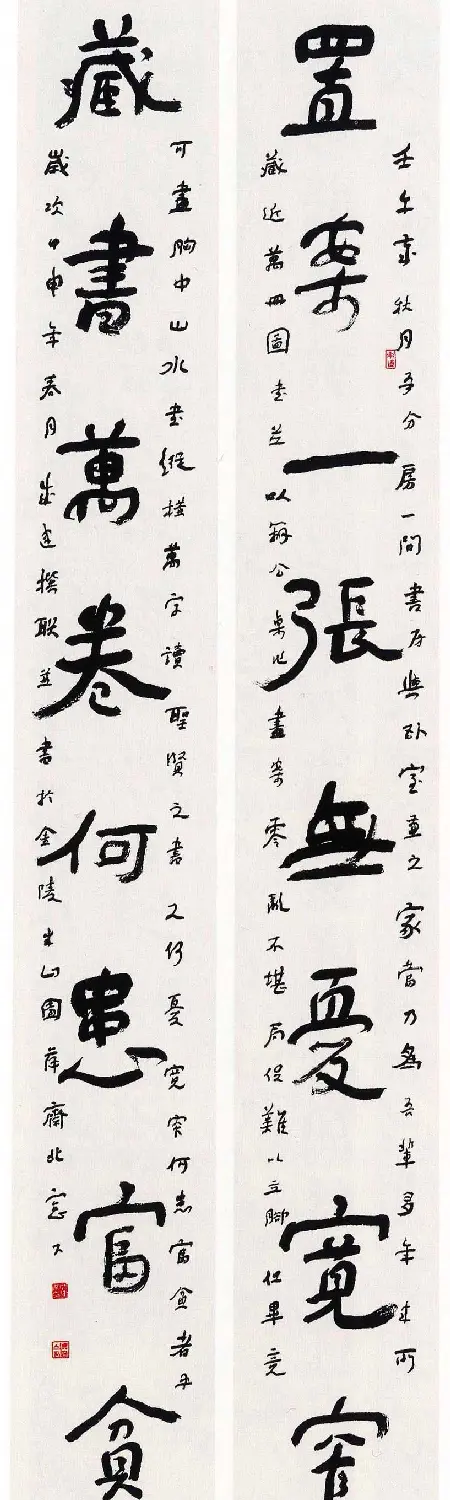 置案一張無憂寬窄
壬午秋月吾分房一間書房與卧室兼之家當乃為吾輩多年來所
藏近萬冊圖書並以辦公桌代畫案零亂不堪局促難以立腳但畢竟
藏書萬卷何患富貧
可畫胸中山水書縱橫萬字讀聖賢之書又何憂寬窄何患富貧者乎
歲次甲申年春月撰聯並書於金陵半山園齋北窗下